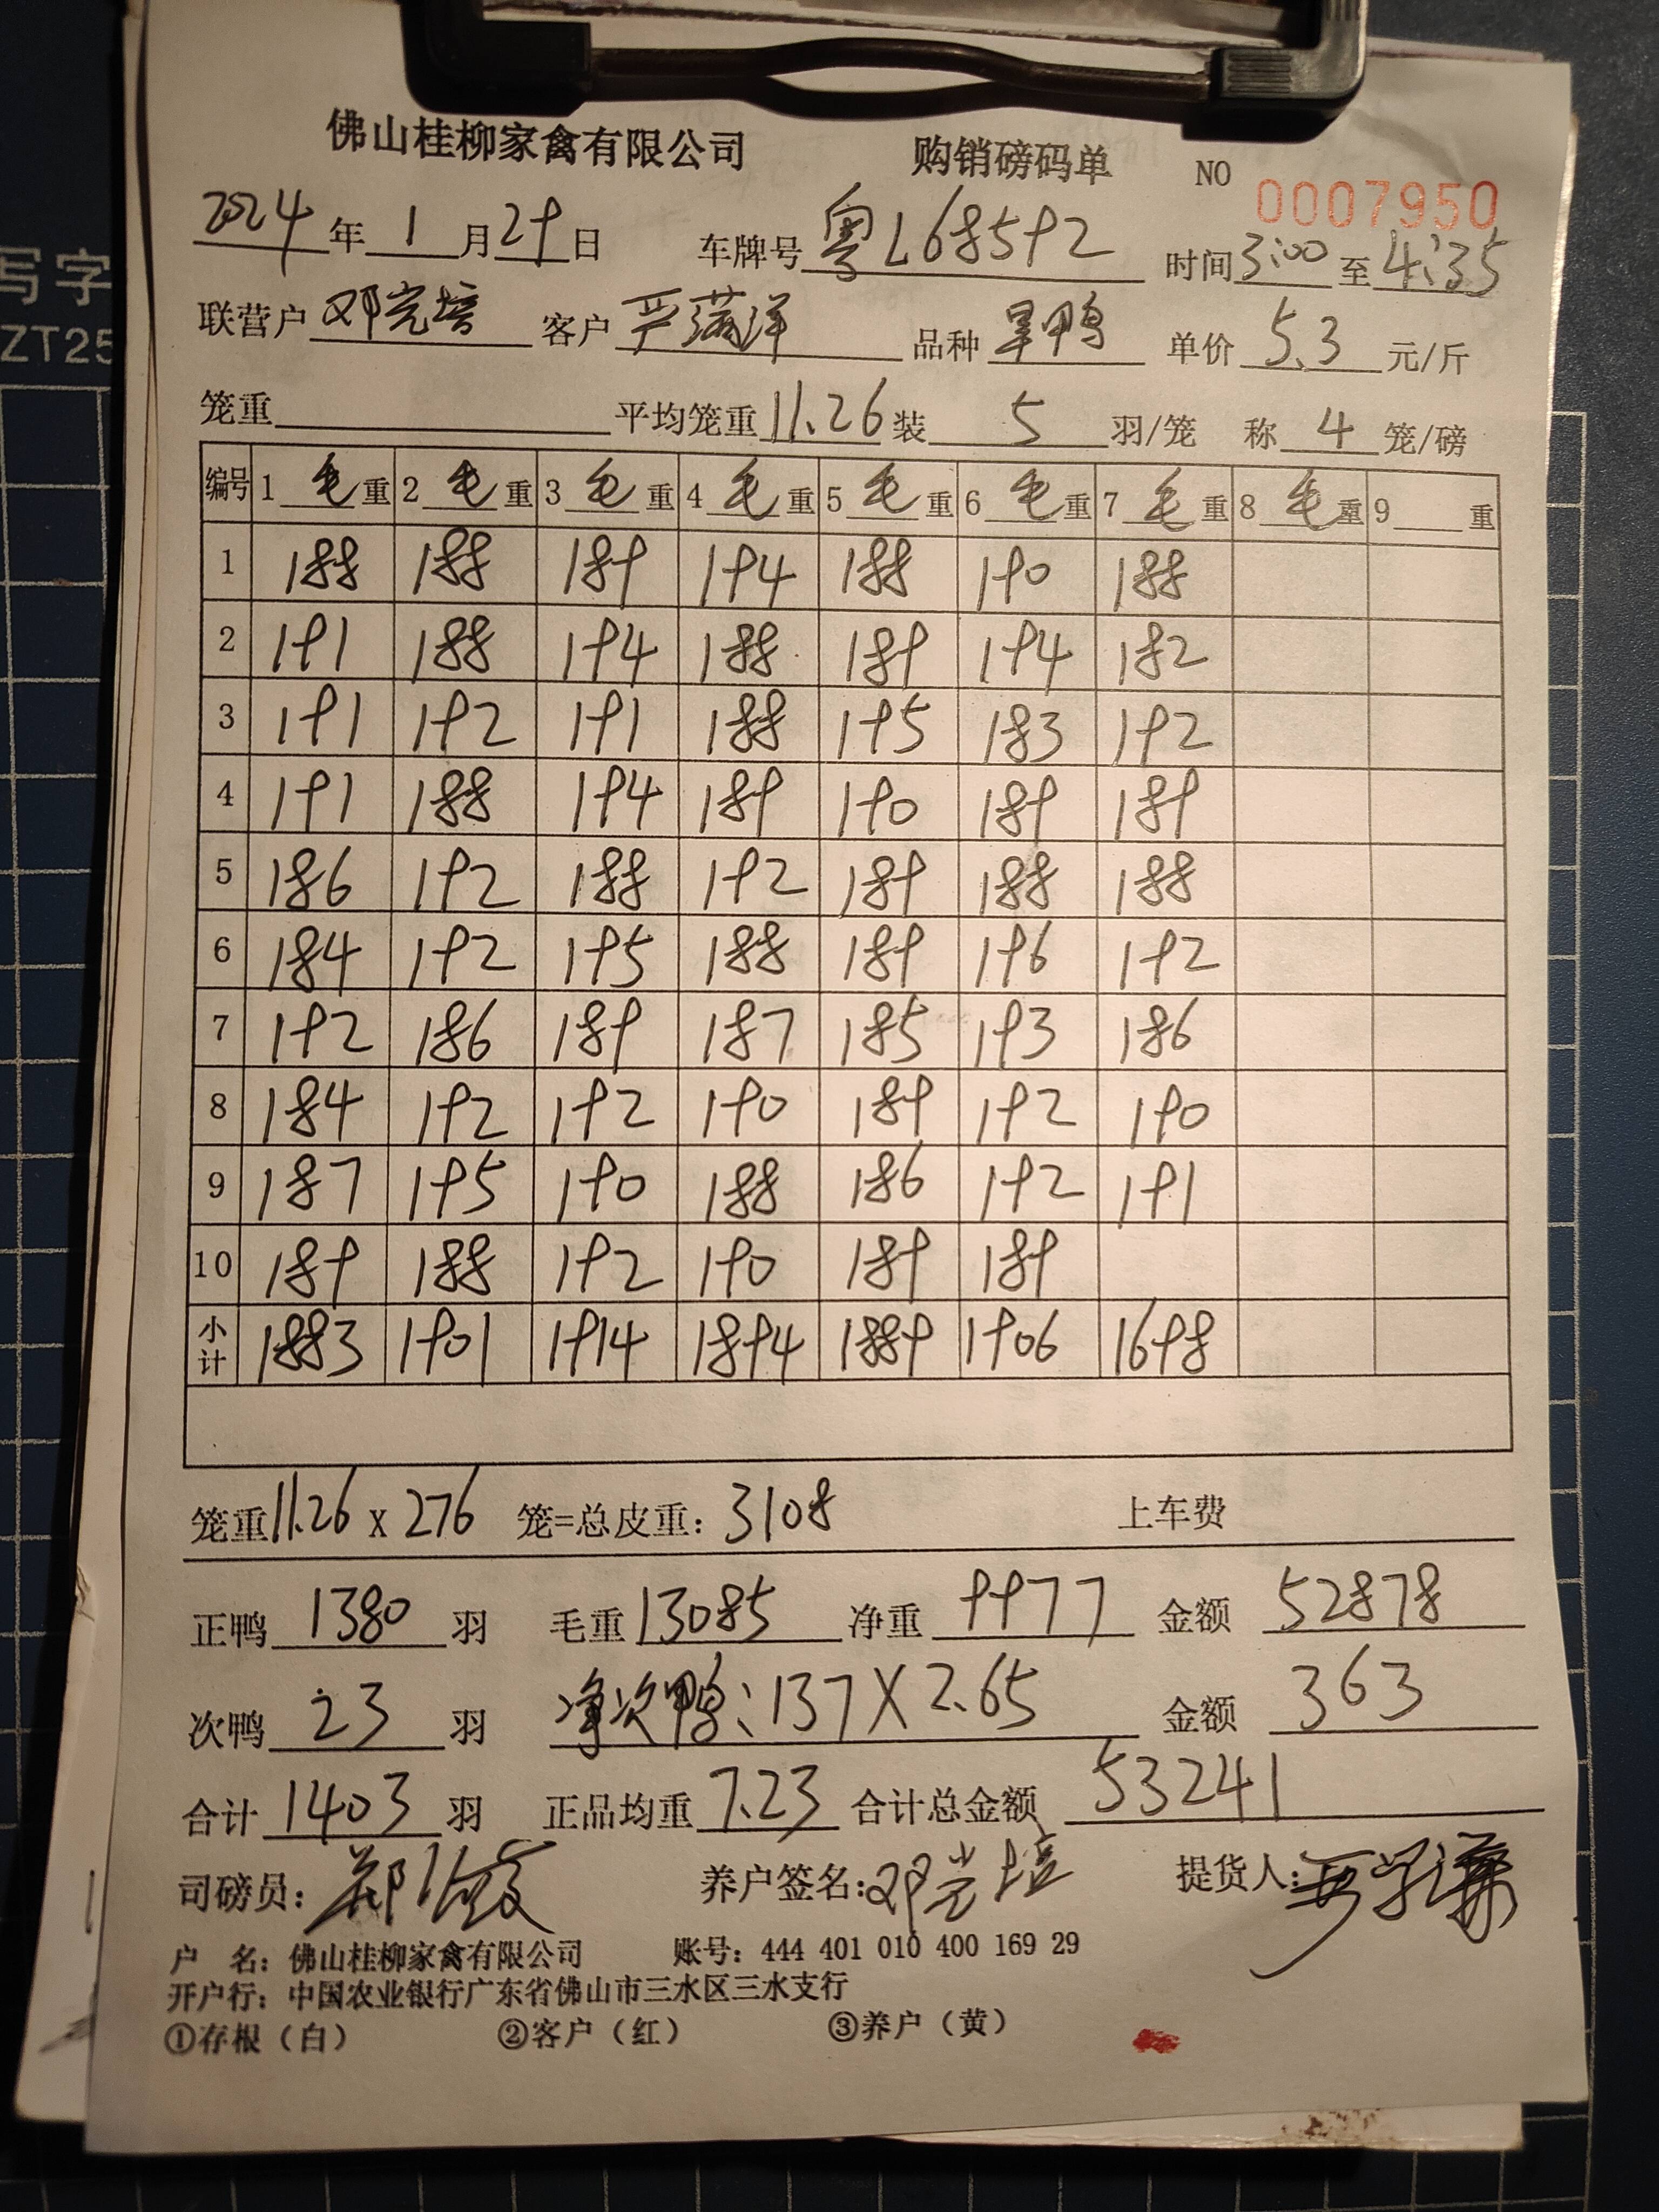 写字
ZT25
佛山桂柳家禽有限公司 购销磅码单 NO 0007950
2024年1月29日 车牌号 粤L68592 时间3:00至4:35
联营户 邓光培 客户 严满洋 品种 旱鸭 单价 5.3 元/斤
笼重 平均笼重11.26装 5 羽/笼 称 4 笼/磅
编号 1毛重 2毛重 3毛重 4毛重 5毛重 6毛重 7毛重 8毛重 9 重
1 188 188 189 194 188 190 188
2 191 188 194 188 189 194 182
3 191 192 191 188 195 183 192
4 191 188 194 189 190 189 189
5 186 192 188 192 189 188 188
6 184 192 195 188 189 196 192
7 192 186 189 187 185 193 186
8 184 192 192 190 189 192 190
9 187 195 190 188 186 192 191
10 189 188 192 190 189 189
小计 1883 1901 1914 1894 1889 1906 1698
笼重11.26 x 276 笼=总皮重: 3108 上车费
正鸭 1380 羽 毛重 13085 净重 9977 金额 52878
次鸭 23 羽 净次鸭: 137 X 2.65 金额 363
合计 1403 羽 正品均重 7.23 合计总金额 53241
司磅员: 养户签名:邓光培 提货人:
户 名: 佛山桂柳家禽有限公司 账号: 444 401 010 400 169 29
开户行: 中国农业银行广东省佛山市三水区三水支行
①存根（白） ②客户（红） ③养户（黄）